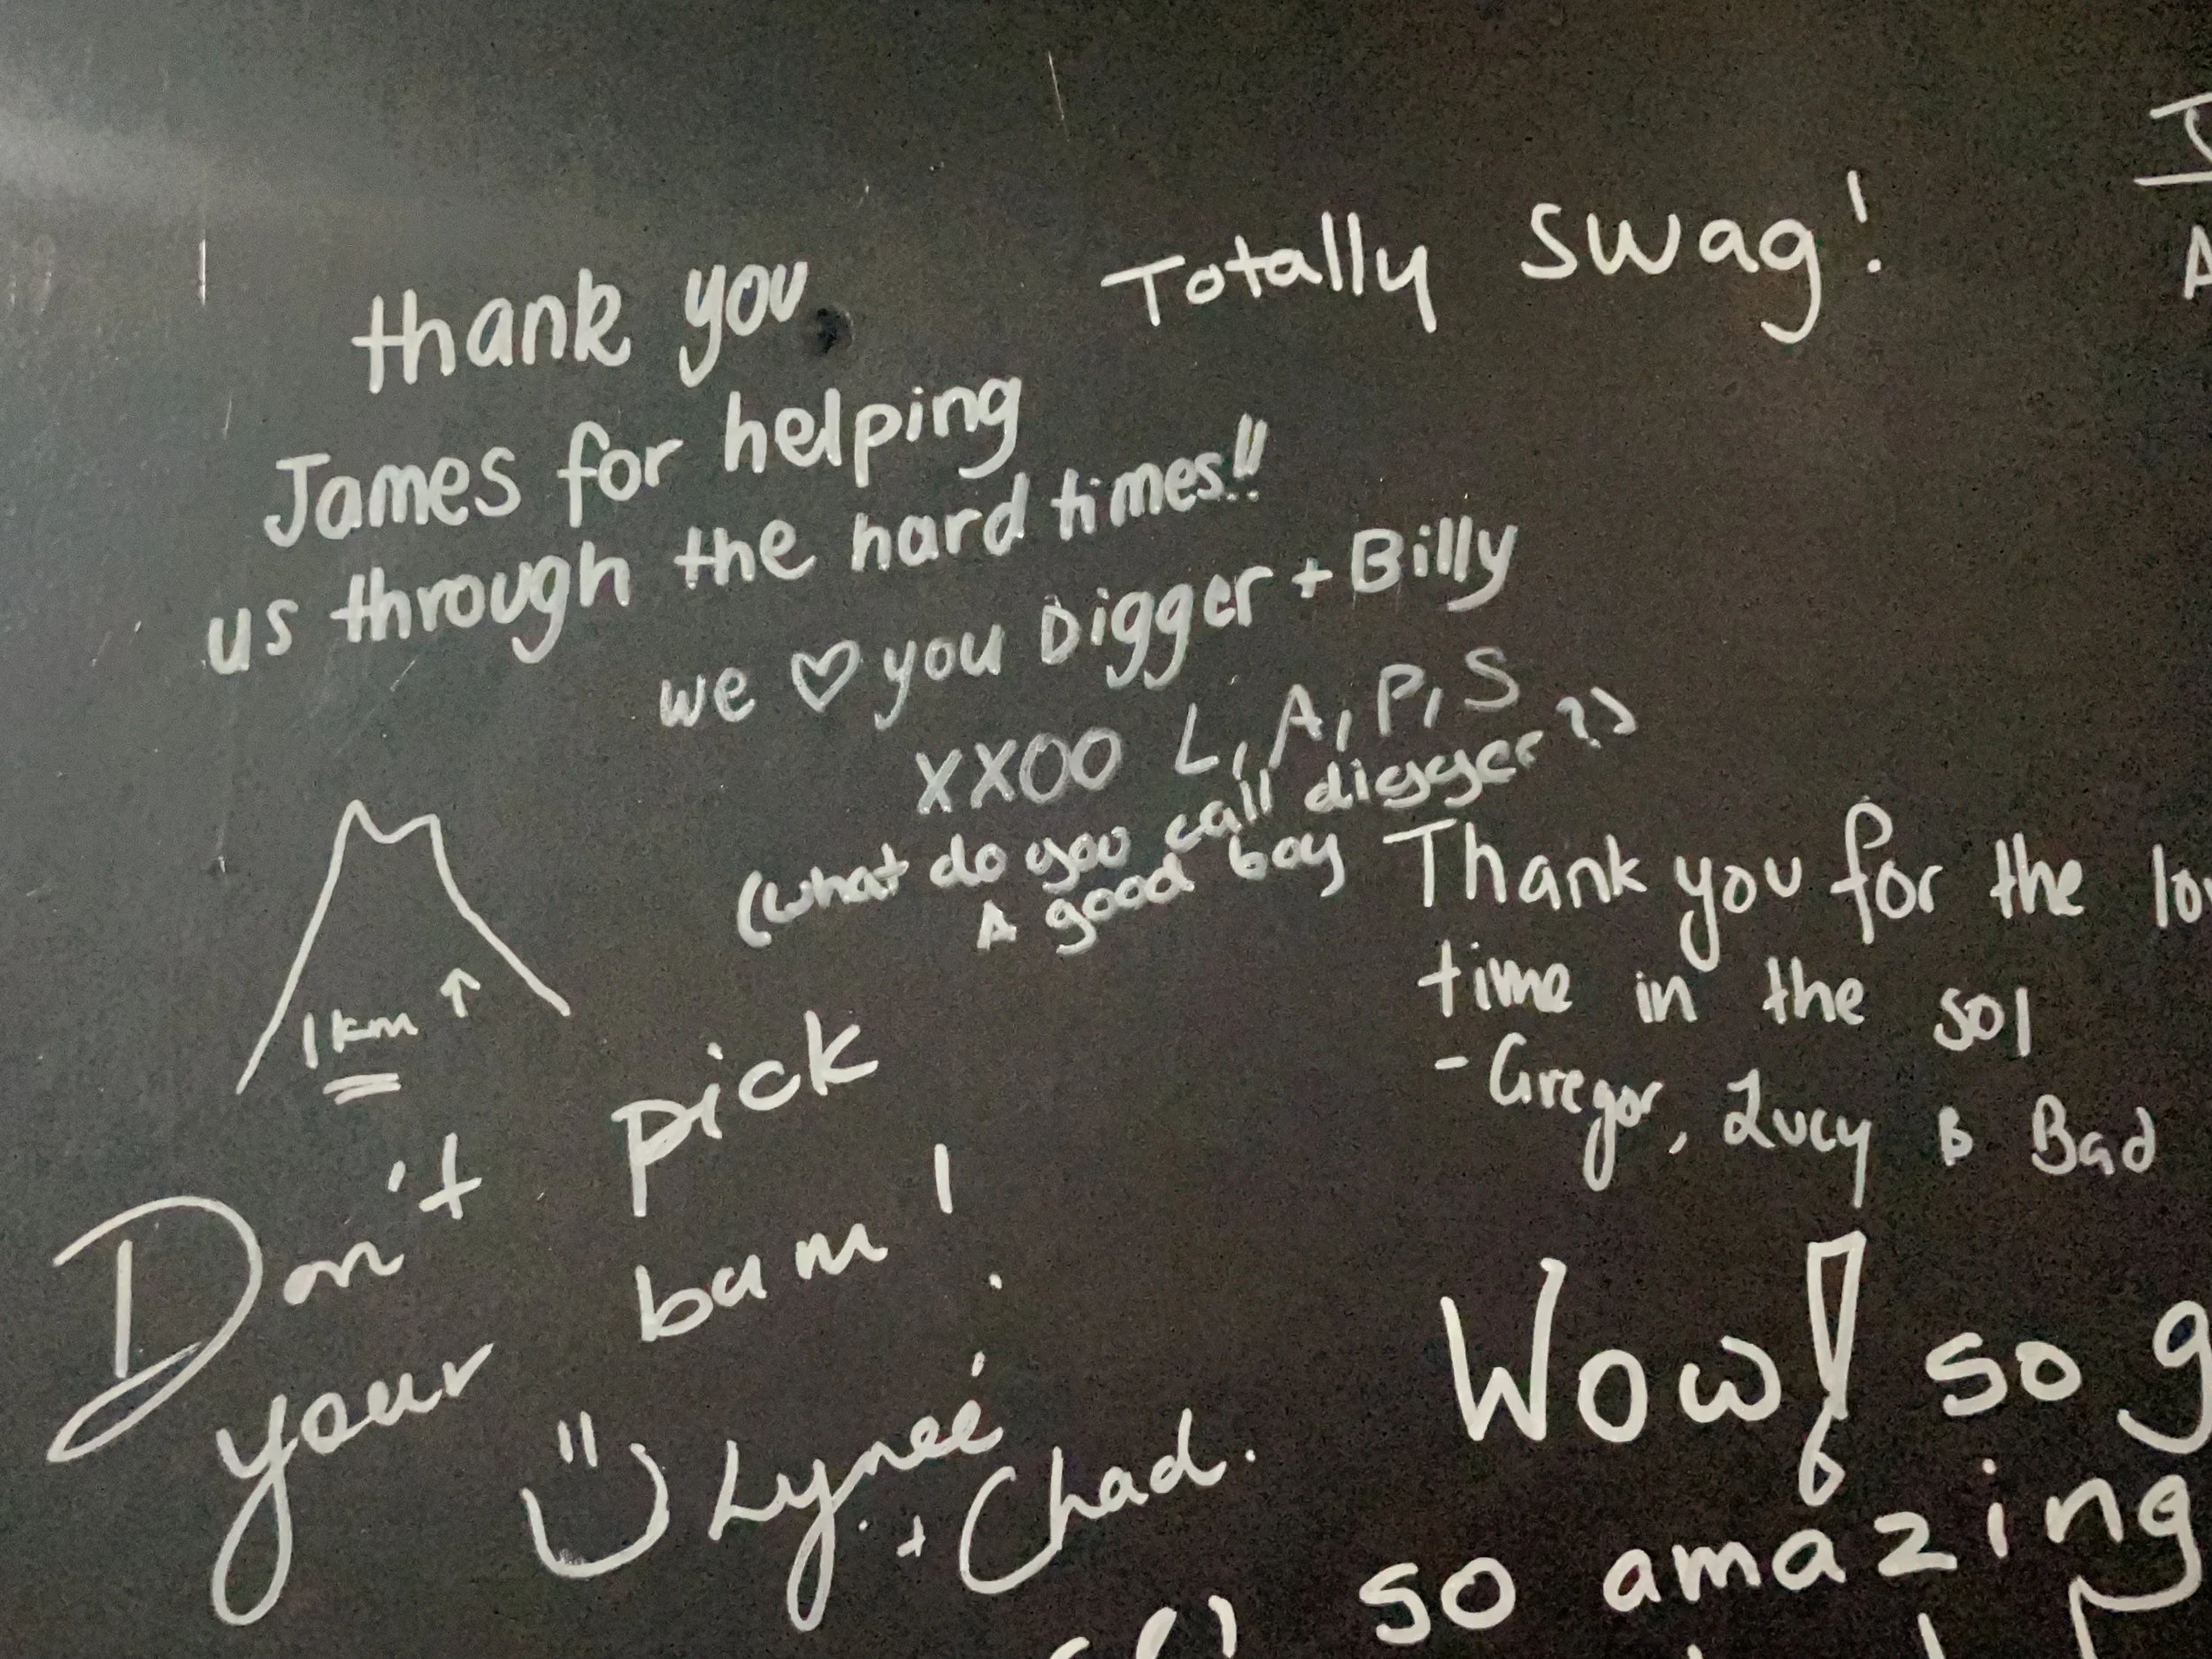 Totally swag!
thank you
James for helping
us through the hard times!!
we ♡ you Digger + Billy
XXOO L, A, P, S
(what do you call digger?)
A good boy
1km ↑
Don't pick
your bum!
Lyneé
+ Chad.
Thank you for the
time in the sol
- Gregor, Lucy & Bad
Wow! so
so amazing